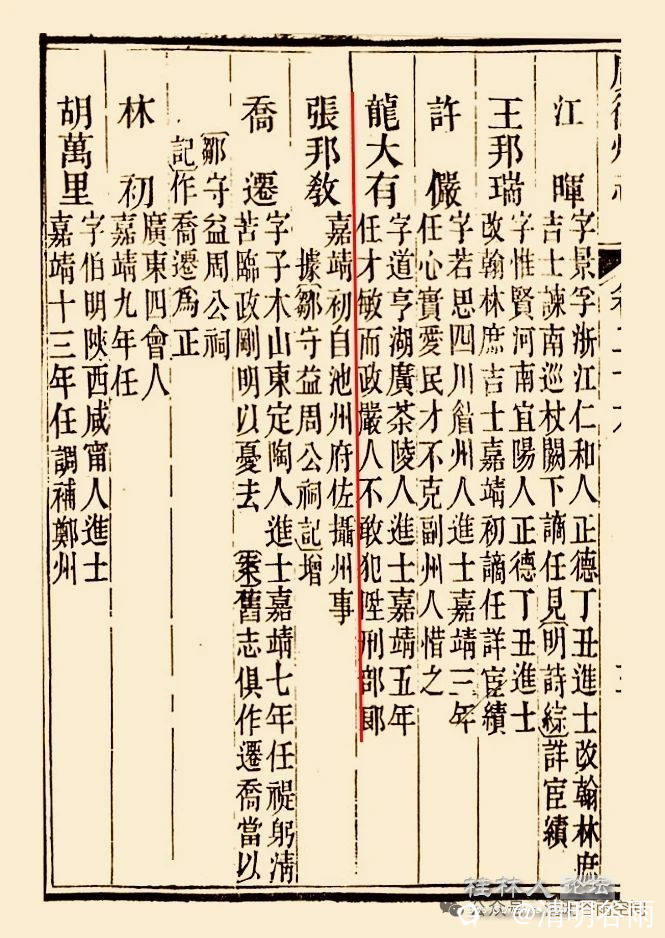 江暉
字景孚浙江仁和人正德丁丑進士改翰林庶
吉士諫南巡杖闕下謫任見明詩綜詳宦績
王邦瑞
字惟賢河南宜陽人正德丁丑進士
改翰林庶吉士嘉靖初謫任詳宦績
許儼
字若思四川眉州人進士嘉靖三年
任心實愛民才不克副州人惜之
龍大有
字道亨湖廣茶陵人進士嘉靖五年
任才敏而政嚴人不敢犯陞刑部郎
張邦教
嘉靖初自池州府佐攝州事
據鄒守益周公祠記增
喬遷
字子木山東定陶人進士嘉靖七年任禔躬清
苦臨政剛明以憂去 案舊志俱作遷喬當以
鄒守益周公祠
記作喬遷爲正
林初
廣東四會人
嘉靖九年任
胡萬里
字伯明陝西咸甯人進士
嘉靖十三年任調補鄭州
桂林人论坛
@清明谷雨